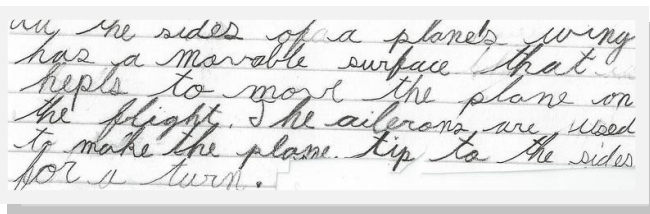 the sides of a plane's wing
has a movable surface that
hepls to move the plane on
the flight. The ailerons are used
to make the plane tip to the sides
for a turn.